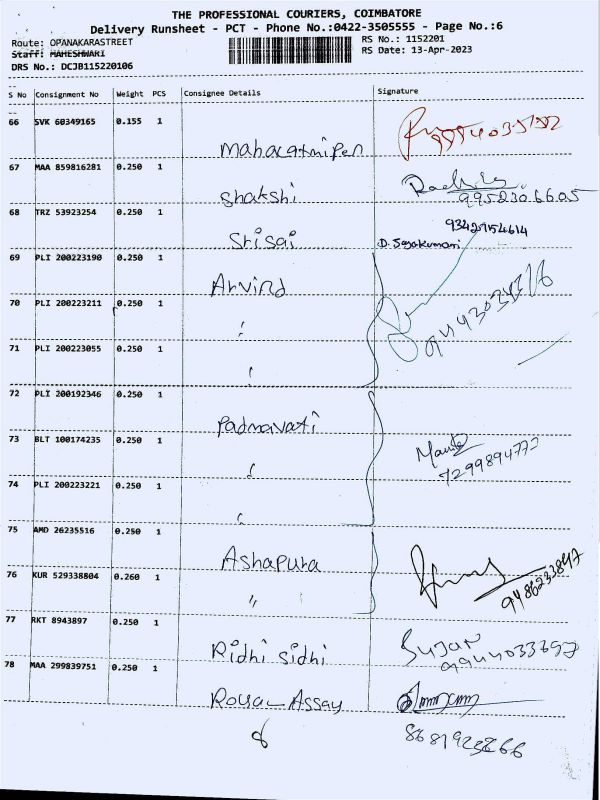 THE PROFESSIONAL COURIERS, COIMBATORE
Delivery Runsheet - PCT - Phone No.:0422-3505555 - Page No.:6
Route: OPANAKARASTREET RS No.: 1152201
Staff: MAHESHWARI RS Date: 13-Apr-2023
DRS No.: DCJB115220106
S No Consignment No Weight PCS Consignee Details Signature
66 SVK 60349165 0.155 1
67 MAA 859816281 0.250 1
Shakshi 9952306605
68 TRZ 53923254 0.250 1
Srisai
69 PLI 200223190 0.250 1
Arvind
70 PLI 200223211 0.250 1
"
71 PLI 200223055 0.250 1
"
72 PLI 200192346 0.250 1
Padmavati
73 BLT 100174235 0.250 1
"
74 PLI 200223221 0.250 1
"
75 AMD 26235516 0.250 1
Ashapura
76 KUR 529338804 0.260 1
" 9486233897
77 RKT 8943897 0.250 1
Ridhi Sidhi Sujan
78 MAA 299839751 0.250 1
Royal Assay
8